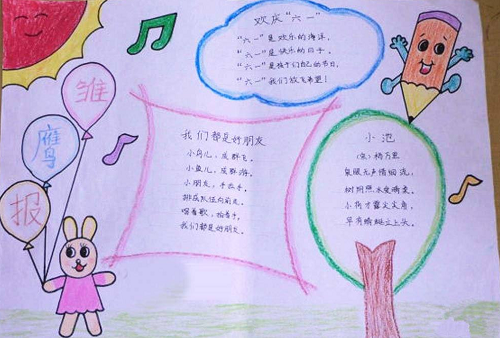 雏
鹰
报
欢庆“六一”
“六一”是欢乐的海洋,
“六一”是快乐的日子,
“六一”是孩子们自己的节日,
“六一”我们放飞希望!
我们都是好朋友
小鸟儿,成群飞。
小鱼儿,成群游。
小朋友,手拉手。
排成队伍向前走。
唱着歌,拍着手,
我们都是好朋友。
小池
(宋) 杨万里
泉眼无声惜细流,
树阴照水爱晴柔。
小荷才露尖尖角,
早有蜻蜓立上头。